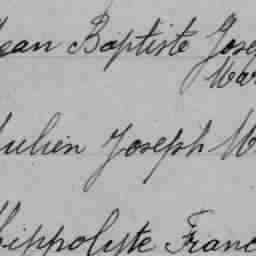 Jean Baptiste Jose
Mar
Julien Joseph M
Hippolyte Franc